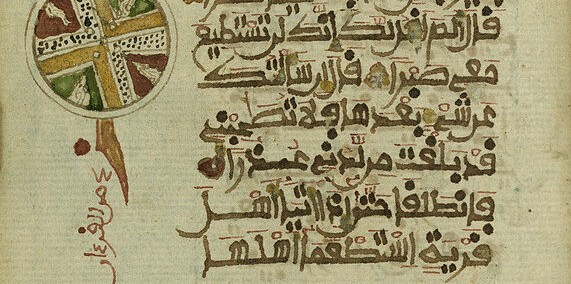 قال الم اقل لك انك لن تستطيع
معى صبرا قال ان سالتك
عن شىء بعدها فلا تصحبنى
قد بلغت من لدنى عذرا
فانطلقا حتى اذا اتيا اهل
قرية استطعما اهلها
من القرءان